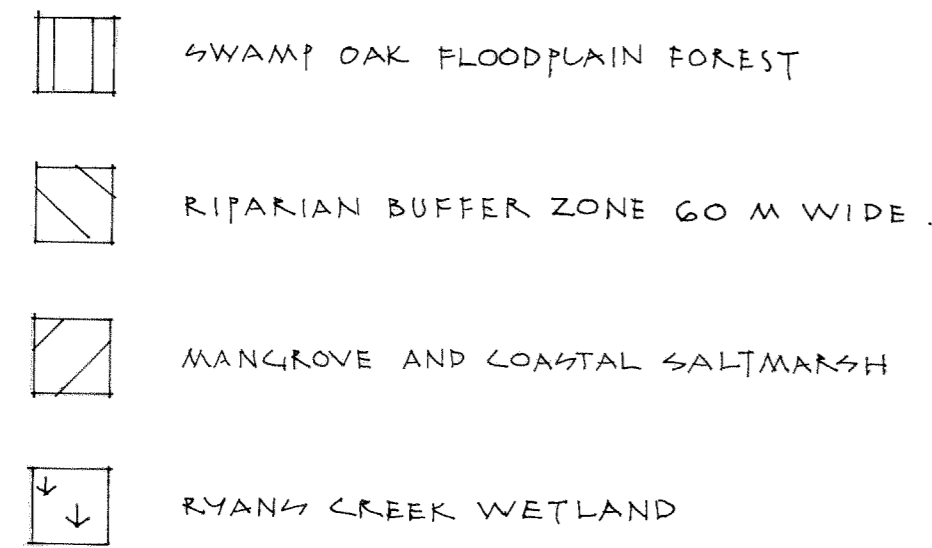 SWAMP OAK FLOODPLAIN FOREST
RIPARIAN BUFFER ZONE 60 M WIDE .
MANGROVE AND COASTAL SALTMARSH
RYANS CREEK WETLAND